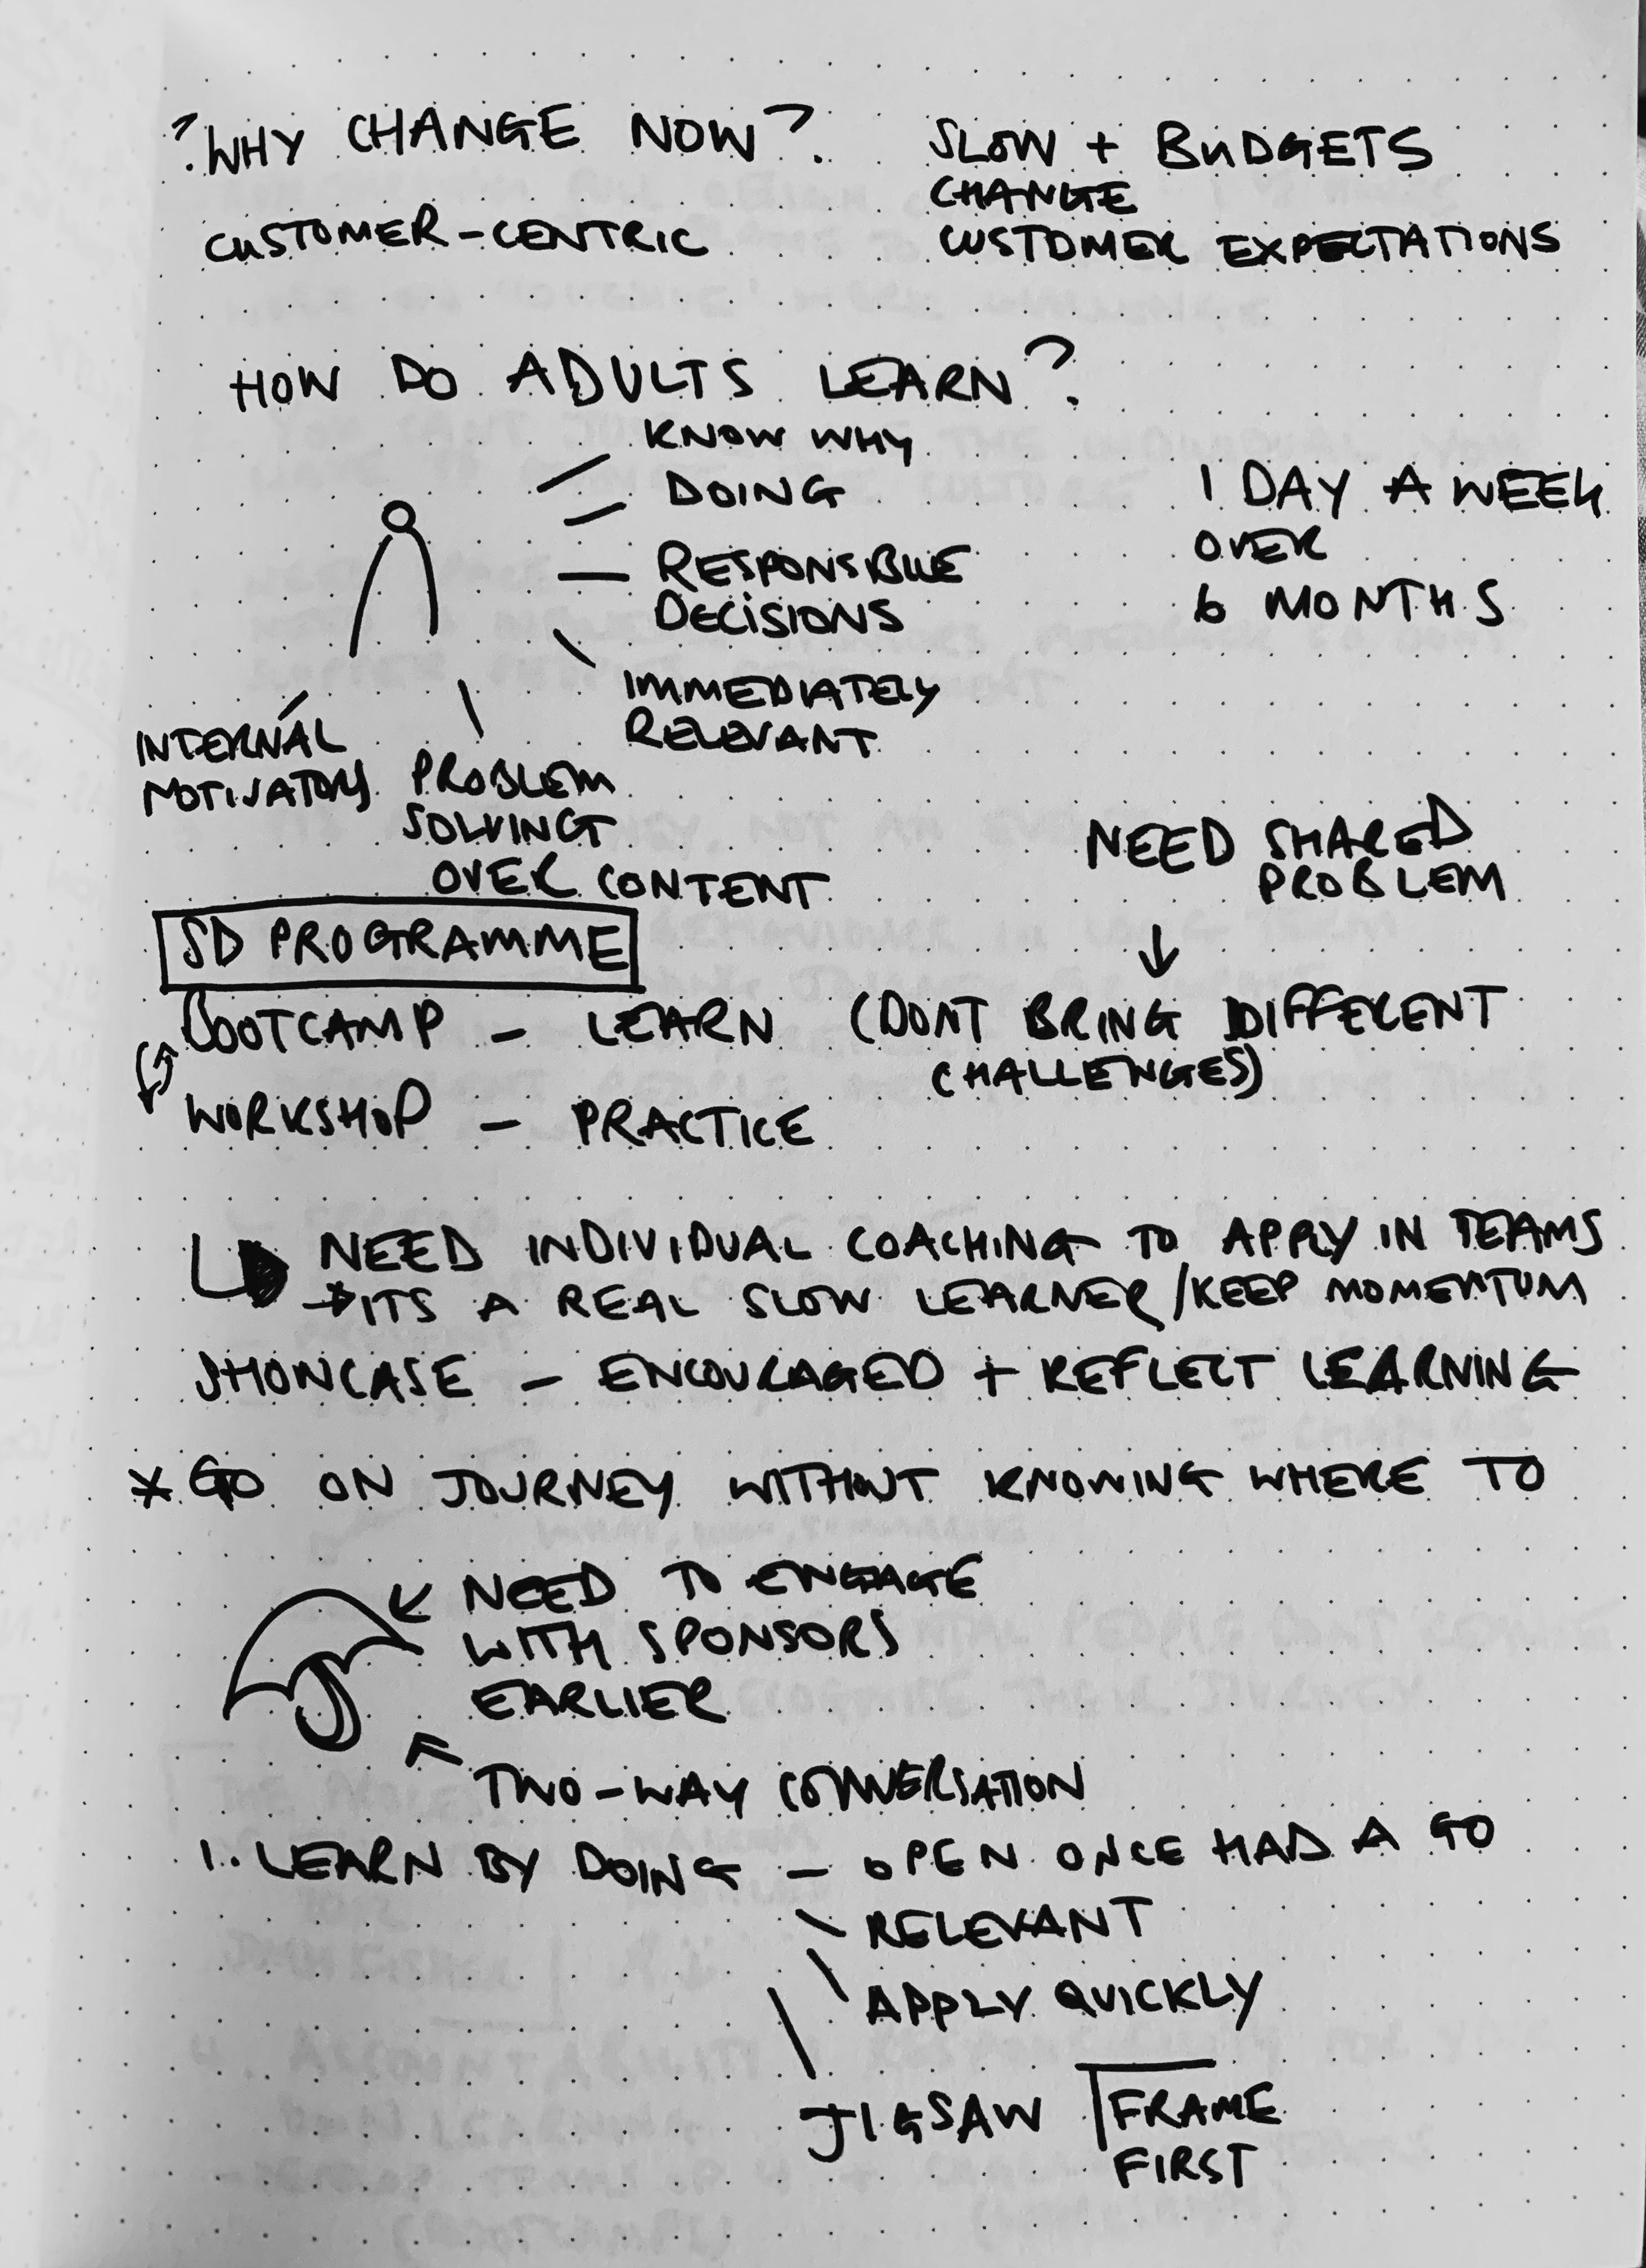 ? WHY CHANGE NOW?
CUSTOMER-CENTRIC
SLOW + BUDGETS
CHANGE
CUSTOMER EXPECTATIONS
HOW DO ADULTS LEARN?
KNOW WHY
DOING
RESPONSIBLE
DECISIONS
IMMEDIATELY
RELEVANT
PROBLEM
SOLVING
OVER CONTENT
INTERNAL
MOTIVATORS
1 DAY A WEEK
OVER
6 MONTHS
NEED SHARED
PROBLEM
SD PROGRAMME
BOOTCAMP - LEARN (DONT BRING DIFFERENT
CHALLENGES)
WORKSHOP - PRACTICE
NEED INDIVIDUAL COACHING TO APPLY IN TEAMS
→ ITS A REAL SLOW LEARNER/KEEP MOMENTUM
SHOWCASE - ENCOURAGED + REFLECT LEARNING
* GO ON JOURNEY WITHOUT KNOWING WHERE TO
NEED TO ENGAGE
WITH SPONSORS
EARLIER
TWO-WAY CONVERSATION
1. LEARN BY DOING - OPEN ONCE HAD A GO
RELEVANT
APPLY QUICKLY
JIGSAW FRAME
FIRST